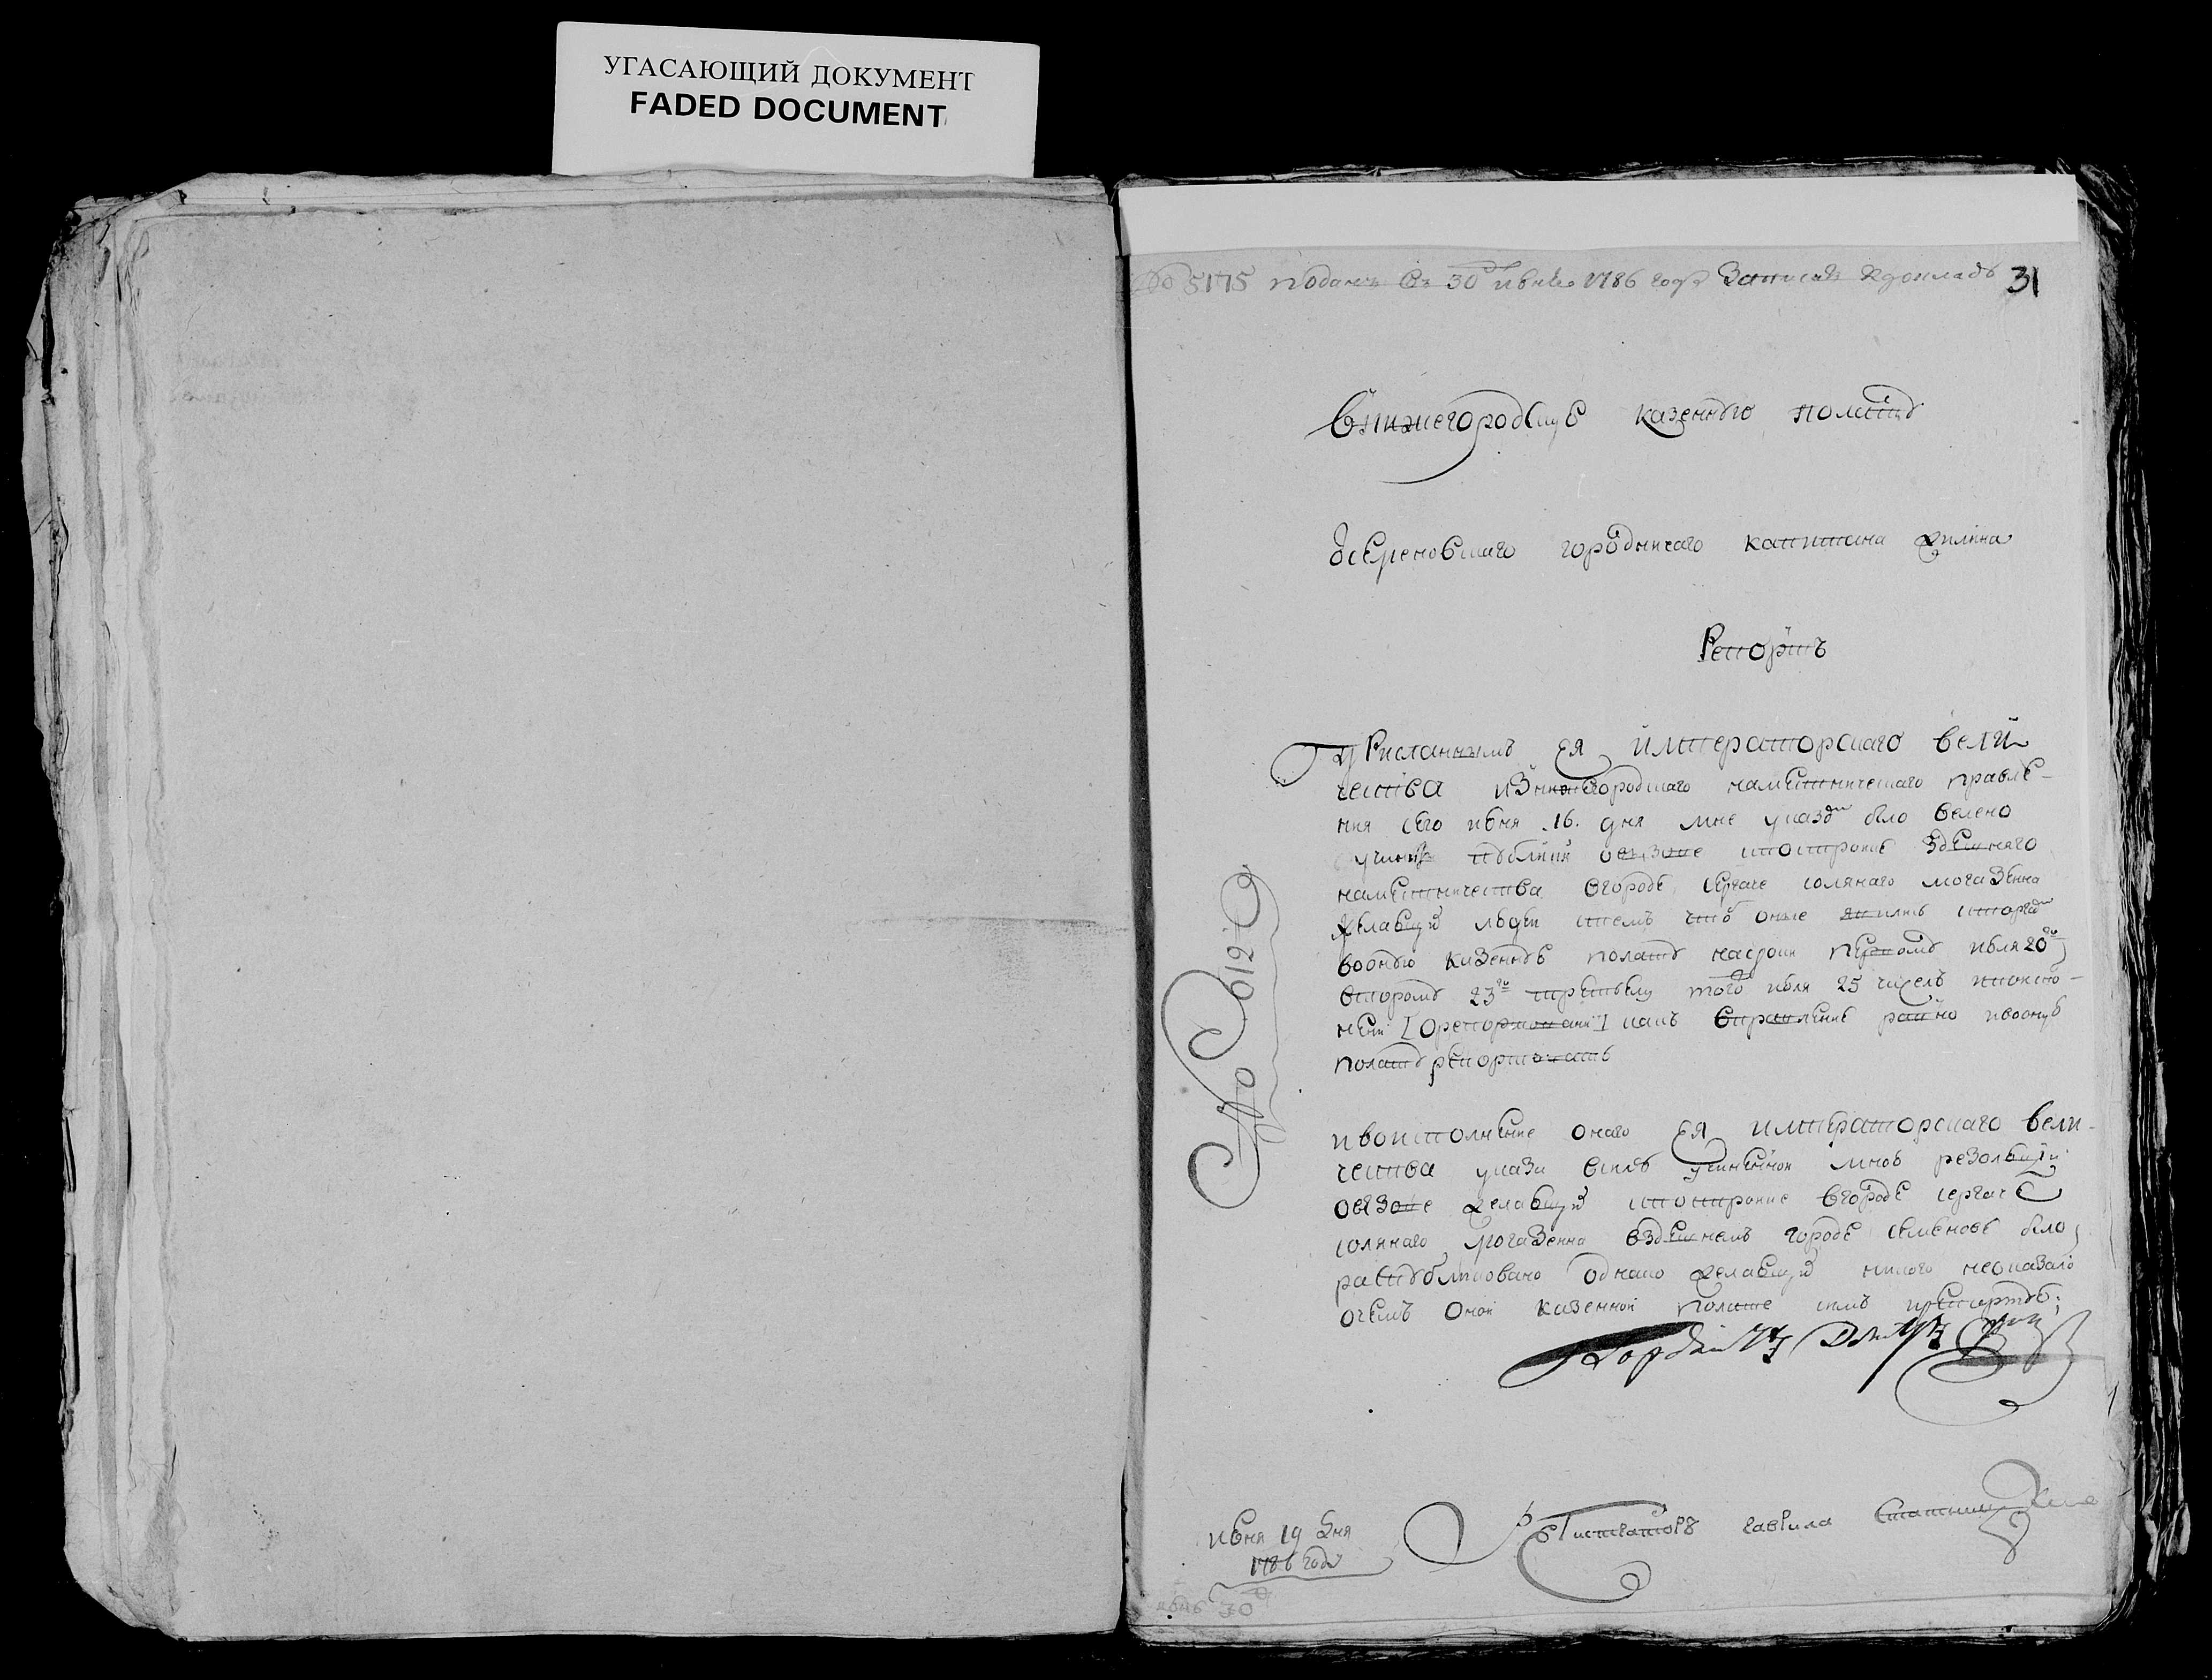 УГАСАЮЩИЙ ДОКУМЕНТ
FADED DOCUMENT
№ 5175 подан въ 30 июня 1786 году Записать къ докладу 31
внижегородскую казенную полату
городничаго капитана
Репортъ
Присланнымъ ея императорскаго вели
чества изнижегородскаго наместническаго правле-
ния сего июня 16. дня мне указом было велено
учинить публикацию овызове кпостройке здешняго
наместничества вгороде сергаче солянаго могазеина
желающих людей стемъ чтоб оные явились кторгам
вооную казенную полату насроки первому июля 20го
второму 23го третьему того июля 25 числъ ипоисполнении
[орепортовании] какъ вправление равно ивоную
полату репортовать
ивоисполнение онаго ея императорскаго вели-
чества указа всилу учиненной мною резолюции
овызове желающих кпостройке вгороде сергаче
солянаго могазеина вздешнемъ городе семенове было
распубликовано однако желающих никого неоказало
очемъ оной казенной полате симъ и репортую;
Городничей Дмитрей
№ 612
июня 19 дня
1786 года
Регистраторъ гаврила
июнь 30